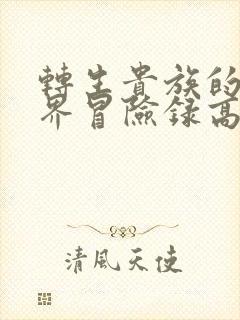 轉生貴族的
界冒險録高
清風天使